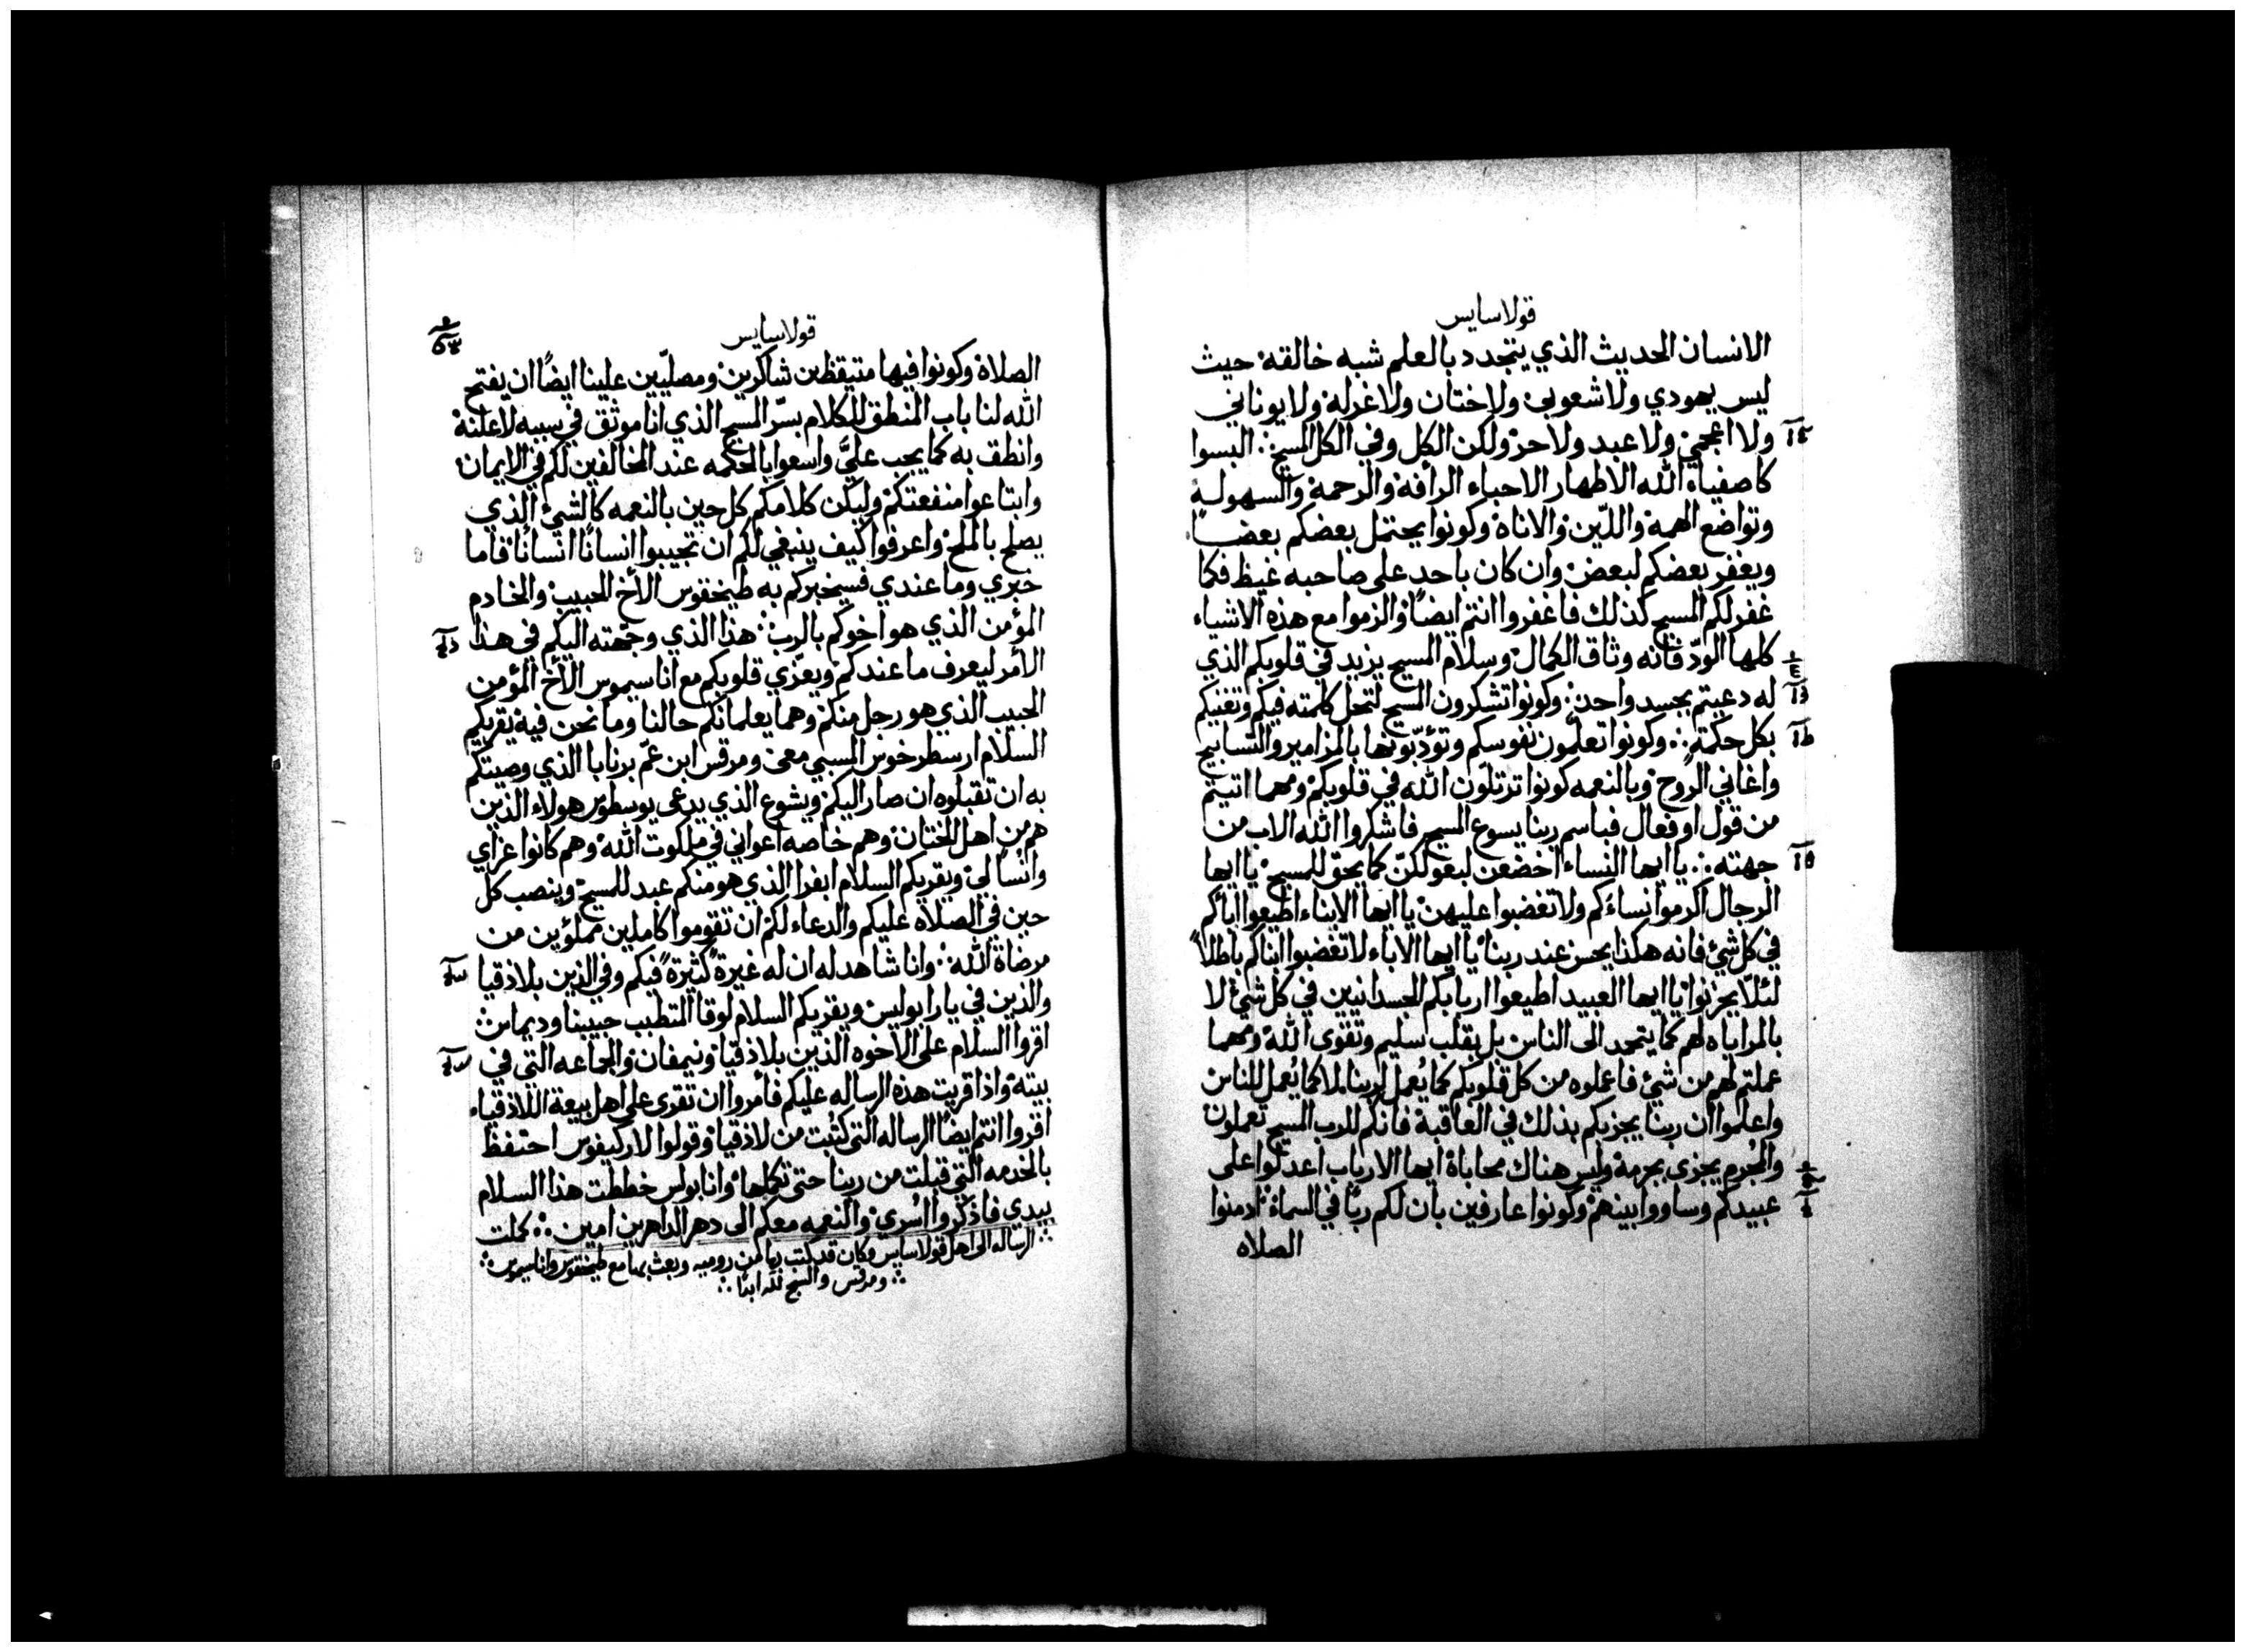 قولاسايس
الانسان الحديث الذي يتجدد بالعلم شبه خالقه حيث
ليس يهودي ولا شعوبي ولا ختان ولا غرله ولا يوناني
ولا اعجمي ولا عبد ولا حر ولكن الكل وفي الكل المسيح ∴ البسوا
كاصفياء الله الاطهار الاحباء الرافة والرحمة والسهولة
وتواضع الهمة واللّين والاناة وكونوا يحتمل بعضكم بعضًا
ويغفر بعضكم لبعض وان كان باحد على صاحبه غيظ فكما
غفر لكم المسيح كذلك فاغفروا انتم ايضًا والزموا مع هذه الاشياء
كلها الودّ فانه وثاق الكمال وسلام المسيح يزيد في قلوبكم الذي
له دعيتم بجسد واحد ∴ وكونوا تشكرون المسيح لتحل كلمته فيكم وتغنيكم
بكل حكمته ∴ وكونوا تعلّمون نفوسكم وتؤدّبونها بالمزامير والتسابيح
واغاني الروح وبالنعمه كونوا ترتلّون الله في قلوبكم ومهما اتيتم
من قول او فعال فباسم ربنا يسوع المسيح فاشكروا الله الاب من
جهته ∴ يا ايها النساء اخضعن لبعولتكنّ كما يحقّ للمسيح يا ايها
الرجال اكرموا نساءكم ولا تغضبوا عليهن يا ايها الابناء اطيعوا اباكم
في كل شيء فانه هكذا يحسن عند ربنا يا ايها الاباء لا تغضبوا ابناكم باطلاً
لئلّا يحزنوا يا ايها العبيد اطيعوا اربابكم الجسدانيين في كل شيء لا
بالمراياه لهم كما يتحمد الى الناس بل بقلب سليم وتقوى الله ومهما
عملتم لهم من شيء فاعملوه من كل قلوبكم كما يُعمل لربنا لا كما يُعمل للناس
واعلموا ان ربنا يجزيكم بذلك في العاقبة فانكم للرب المسيح تعملون
والمجرم يجزى بجرمه وليس هناك محاباة ايها الارباب اعدلوا على
عبيدكم وساووا بينهم وكونوا عارفين بان لكم ربًا في السماء ∴ ادمنوا
الصلاه
قولاسايس
الصلاة وكونوا فيها متيقظين شاكرين ومصليّين علينا ايضًا ان يفتح
الله لنا باب المنطق للكلام بسرّ المسيح الذي انا موثق في سببه لاعلنه
وانطق به كما يجب عليَّ واسعوا بالحكمه عند المخالفين لكم في الايمان
وابتاعوا منفعتكم وليكن كلامكم كل حين بالنعمه كالشيء الذي
يصلح بالملح واعرفوا كيف ينبغي لكم ان تجيبوا انسانًا انسانًا فاما
خبري وما عندي فسيخبركم به طيخقوس الأخ الحبيب والخادم
المؤمن الذي هو اخوكم بالرب ∴ هذا الذي وجّهته اليكم في هذا
الأمر ليعرف ما عندكم ويعزّي قلوبكم مع اناسيموس الأخ المؤمن
الحبيب الذي هو رجل منكم وهما يعلمانكم حالنا وما نحن فيه يقريكم
السلام ارسطرخوس المسبي معى ومرقس ابن عمّ برنابا الذي وصيتكم
به ان تقبلوه ان صار اليكم ويشوع الذي يدعى يوسطوس هولاء الذين
هم من اهل الختان وهم خاصه اعواني في ملكوت الله وهم كانوا عزاي
وانسا لي ويقريكم السلام ابفرا الذي هو منكم عبد للمسيح وينصب كل
حين في الصلاه عليكم والدعاء لكم ان تقوموا كاملين مملؤين من
مرضاة الله ∴ وانا شاهد له ان له غيرةً كثيرةً فيكم وفي الذين بلاذقيا
والذين في يارابوليس ويقريكم السلام لوقا المتطبب حبيبنا وديماس ∴
اقروا السلام على الاخوه الذين بلاذقيا ونيمفان والجماعه التي في
بيته واذا قريت هذه الرساله عليكم فأمروا ان تقرى على اهل بيعة اللاذقياء
اقروا انتم ايضًا الرساله التي كُتبت من لاذقيا وقولوا لاركيفوس احتفظ
بالخدمه التي قبلت من ربنا حتى تكملها وانا بولس خططت هذا السلام
بيدي فاذكروا اسري والنعمه معكم الى دهر الداهرين امين ∴ كملت
الرساله الى اهل قولاسايس وكان قد كتب بها من روميه وبعث بها مع طيخقوس واناسيموس ∴
∴ ومرقس والسبح لله ابدًا ∴